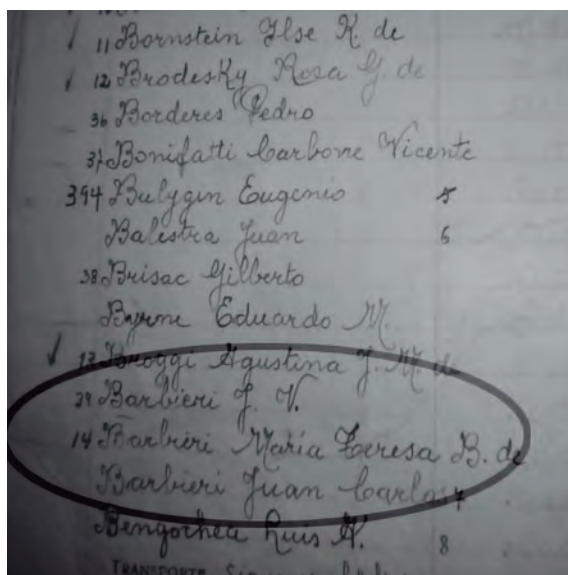 11 Bornstein Ilse K. de
12 Brodesky Rosa G. de
36 Borderes Pedro
37 Bonifatti Carbone Vicente
394 Bulygin Eugenio 5
Balestra Juan 6
38 Brisac Gilberto
Byrne Eduardo M.
13 Broggi Agustina J. M. de
39 Barbieri J. V.
14 Barbieri María Teresa B. de
Barbieri Juan Carlos 7
Bengochea Luis A. 8
TRANSPORTE